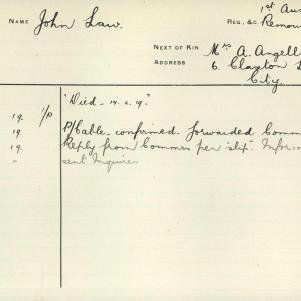 NAME John Law. REG., &C. 1st Aus
Remou
NEXT OF KIN Mrs A. Angell
ADDRESS 6. Clayton
City.
"Died - 14.2.19."
19. I/P P/Cable. confirmed. forwarded Comm
19 Reply from Commrs per slip. Infor
" sent Inquirer